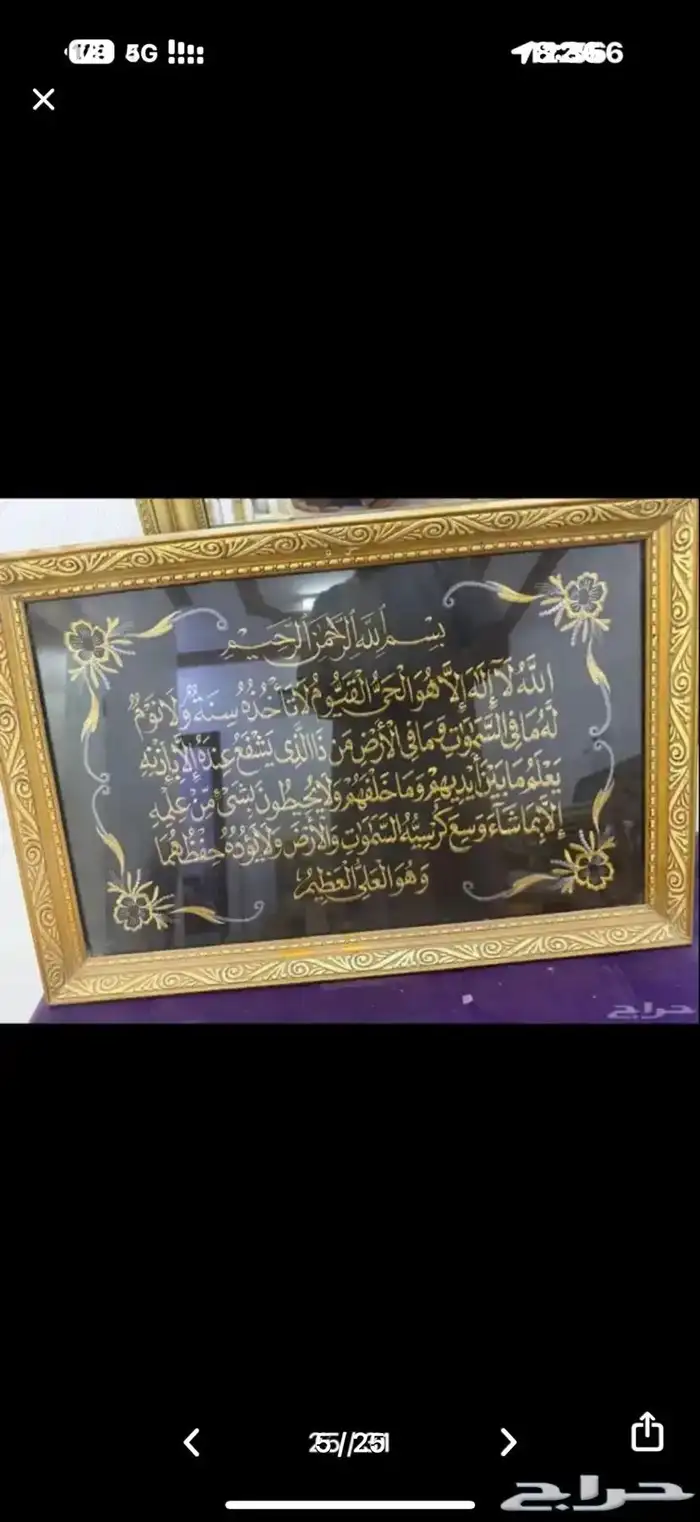 5G
بِسْمِ اللَّهِ الرَّحْمَٰنِ الرَّحِيمِ
اللَّهُ لَا إِلَٰهَ إِلَّا هُوَ الْحَيُّ الْقَيُّومُ لَا تَأْخُذُهُ سِنَةٌ وَلَا نَوْمٌ
لَهُ مَا فِي السَّمَٰوَٰتِ وَمَا فِي الْأَرْضِ مَن ذَا الَّذِي يَشْفَعُ عِندَهُ إِلَّا بِإِذْنِهِ
يَعْلَمُ مَا بَيْنَ أَيْدِيهِمْ وَمَا خَلْفَهُمْ وَلَا يُحِيطُونَ بِشَيْءٍ مِّنْ عِلْمِهِ
إِلَّا بِمَا شَاءَ وَسِعَ كُرْسِيُّهُ السَّمَٰوَٰتِ وَالْأَرْضَ وَلَا يَئُودُهُ حِفْظُهُمَا
وَهُوَ الْعَلِيُّ الْعَظِيمُ
حراج
حراج